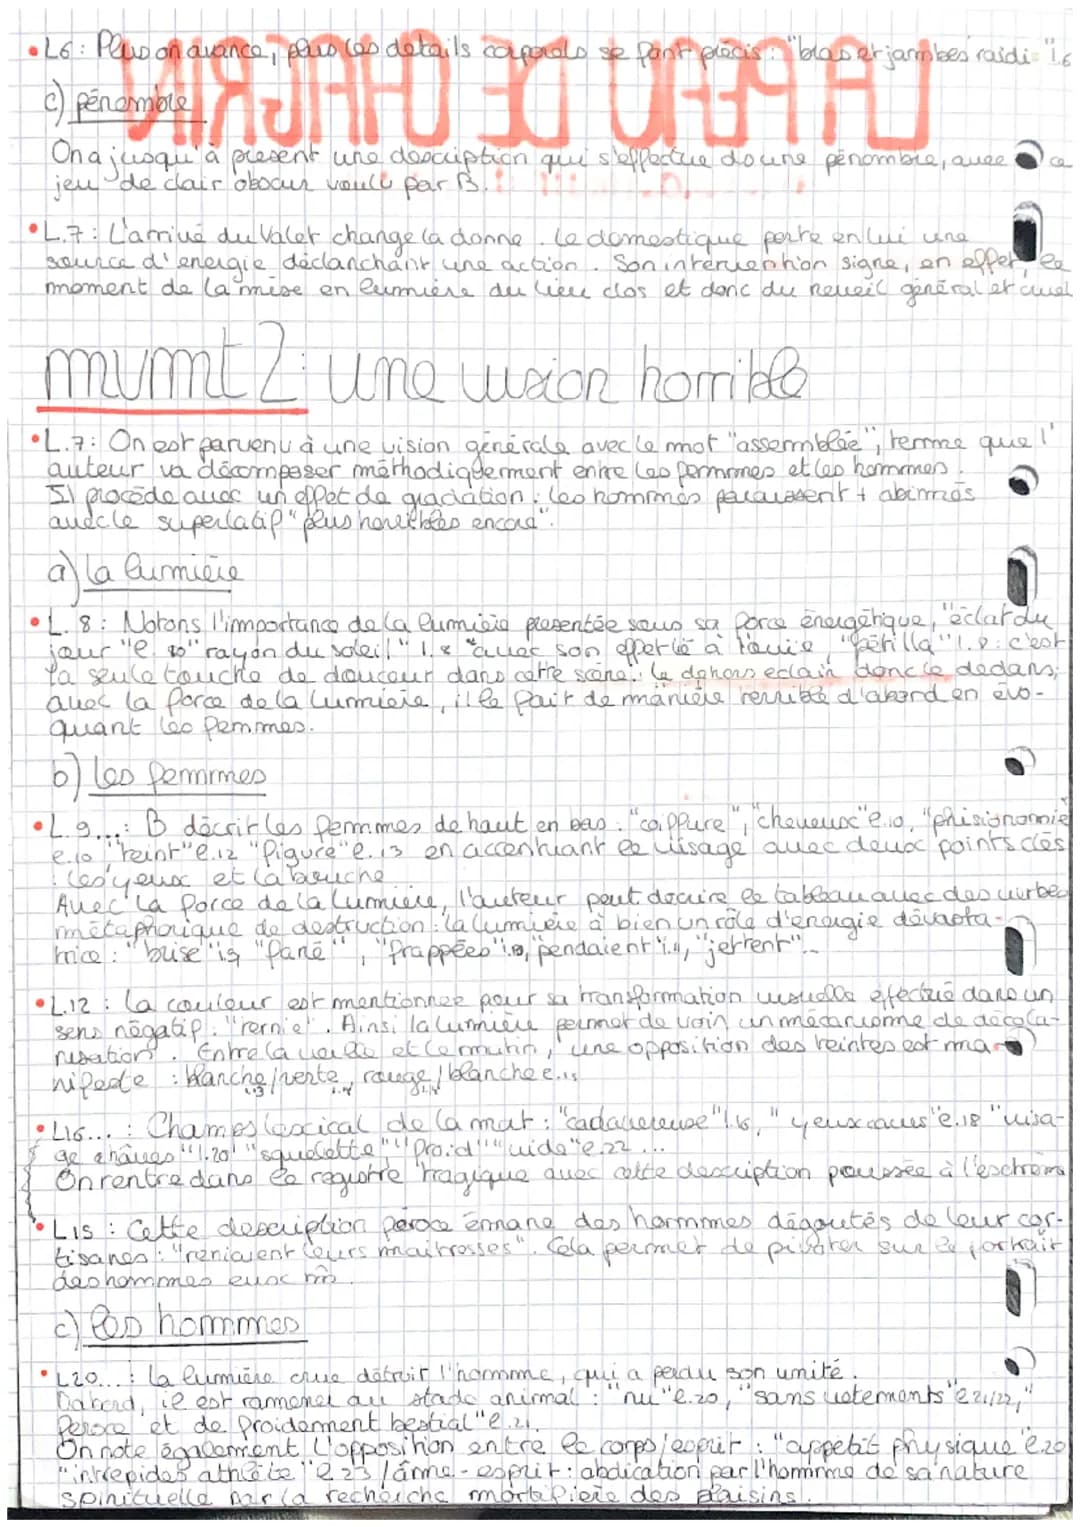 • L6 : Plus on avance, plus les détails corporels se font précis : "bras et jambes raidis" l.6
c) pénombre
On a jusqu'à présent une description qui s'effectue ds une pénombre, avec ce
jeu de clair obscur voulu par B.
• L.7 : L'arrivé du Valet change la donne. Le domestique porte en lui une
source d'énergie déclanchant une action. Son intervention signe, en effet, le
moment de la mise en lumière du lieu clos et donc du réveil général et cruel
mvmt 2 : une vision horrible
• L.7 : On est parvenu à une vision générale avec le mot "assemblée", terme que l'
auteur va décomposer méthodiquement entre les femmes et les hommes.
Il procède avec un effet de gradation : les hommes paraissent + abimés
avec le superlatif "plus horribles encore".
a) la lumière
• L.8 : Notons l'importance de la lumière présentée sous sa force énergétique, "éclat du
jour" "rayon du soleil" l.8 avec son effet lié à l'ouïe, "pétilla" l.8 : c'est
la seule touche de douceur dans cette scène. Le dehors eclair donc le dedans ;
avec la force de la lumière, il le fait de manière terrible d'abord en évo-
quant les femmes.
b) les femmes
• L.9... : B décrit les femmes de haut en bas : "coiffure", "cheveux" l.10, "phisionomie"
l.10, "teint" l.12 "figure" l.13 en accentuant le visage avec deux points clés
: les yeux et la bouche.
Avec la force de la lumière, l'auteur peut décrire le tableau avec des verbes
métaphorique de destruction : la lumière à bien un rôle d'énergie dévasta-
trice : "fané", "frappées", "pendaient" l.11, "jettent"...
• L.12 : la couleur est mentionnée pour sa transformation visuelle effectué dans un
sens négatif : "ternie". Ainsi la lumière permet de voir un mécanisme de décolo-
risation. Entre la veille et le matin, une opposition des teintes est ma-
nifeste : blanche/verte, rouge/blanche l.15
• L16... : Champs lexical de la mort : "cadavereuse" l.16, "yeux caves" l.18 "visa-
ge hâves" l.20 "squelette", "froid" "vide" l.22 ...
On rentre dans le registre tragique avec cette description poussée à l'extrême
• L15 : Cette description féroce émane des hommes dégoutés de leur cour-
tisanes : "reniaient leurs maitresses". Cela permet de pivoter sur le portrait
des hommes eux m̂.
c) les hommes
• L20... : La lumière crue détruit l'homme, qui a perdu son unité.
D'abord, il est ramené au stade animal : "nu" l.20, "sans vetements" l.21/22, "
féroce et de froidement bestial" l.21.
On note également l'opposition entre le corps/esprit : "appetit physique" l.20
"intrepides athlète" l.23 / âme - esprit : abdication par l'homme de sa nature
spirituelle par la recherche mortifière des plaisirs.
LA PEAU DE CHAGRIN